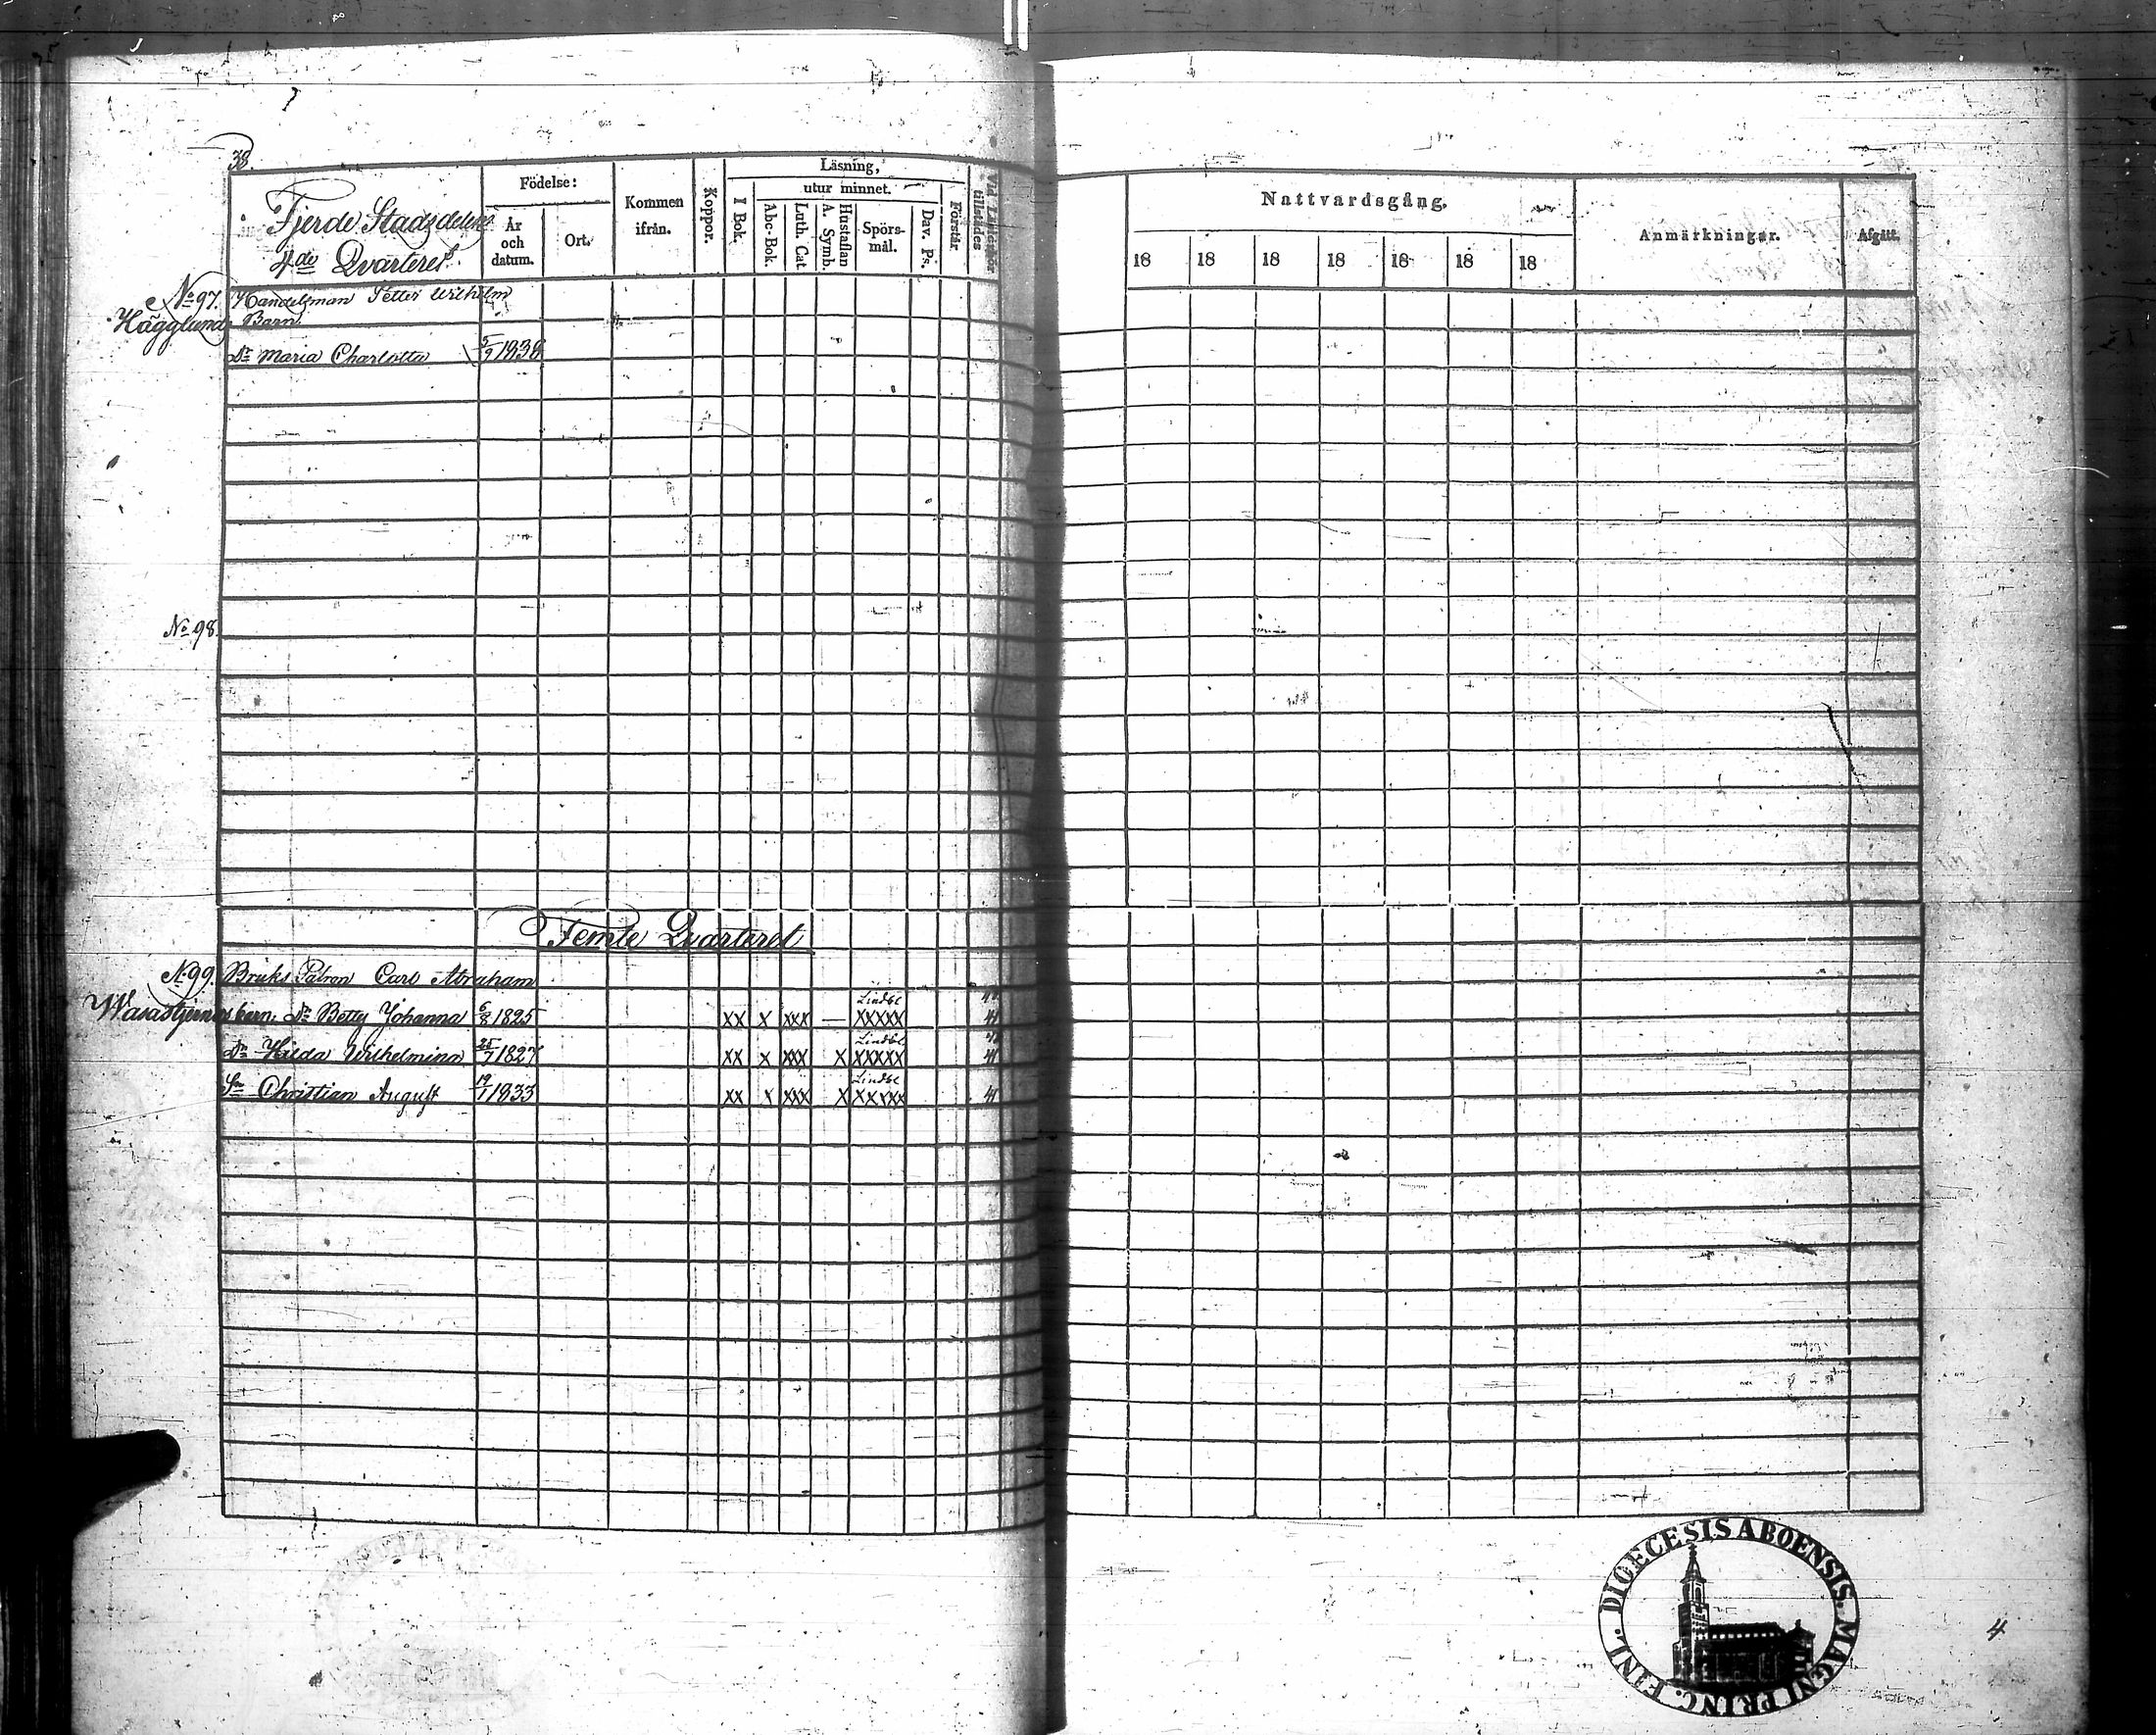 38.
Fjerde Stadsdelen
4de Qvarteret.
Födelse:
År och datum.
Ort.
Kommen ifrån.
Koppor.
Läsning,
I Bok.
utur minnet.
Abc-Bok.
Luth. Cat.
Hustaflan A. Symb.
Spörsmål.
Dav. Ps.
Förstår
Vid Läsförhör tillstädes
Nattvardsgång.
18 18 18 18 18 18 18
Anmärkningar.
Afgått.
No 97. Handelsman Petter Wilhelm
Hägglunds Barn.
Dr Maria Charlotta 5/9 1838
No 98.
Femte Qvarteret
No 99. Bruks Patron Carl Abraham
Wasastjernas barn. Dr Betty Johanna 6/8 1825 xx x xxx — Lindbl xxxxx 41
Dr Hilda Wilhelmina 25/7 1827 xx x xxx x Lindbl xxxxx 41
Sn Christian August 19/1 1833 xx x xxx x Lindbl xxxxx 41
DIOECESIS ABOENSIS. MAGNI PRINC. FINL.
4